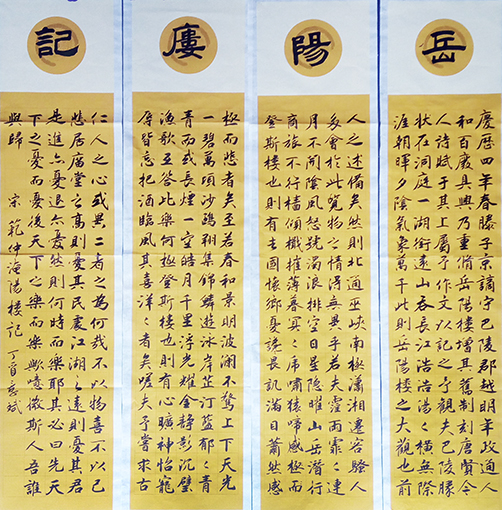 岳
慶曆四年春滕子京謫守巴陵郡越明年政通人
和百廢具興乃重修岳陽樓增其舊制刻唐賢今
人詩賦于其上屬予作文以記之予觀夫巴陵勝
狀在洞庭一湖銜遠山吞長江浩浩湯々橫無際
涯朝暉夕陰氣象萬千此則岳陽樓之大觀也前
陽
人之述備矣然則北通巫峽南極瀟湘遷客騷人
多會於此覽物之情得無異乎若夫霪雨霏々連
月不開陰風怒號濁浪排空日星隱曜山岳潛行
商旅不行檣傾楫摧薄暮冥々虎嘯猿啼感極而
登斯樓也則有去國懷鄉憂讒畏譏滿目蕭然感
廔
極而悲者矣至若春和景明波瀾不驚上下天光
一碧萬頃沙鷗翔集錦鱗游泳岸芷汀蘭郁々青
青而或長煙一空皓月千里浮光耀金靜影沉璧
漁歌互答此樂何極登斯樓也則有心曠神怡寵
辱皆忘把酒臨風其喜洋々者矣嗟夫予嘗求古
記
仁人之心或異二者之為何哉不以物喜不以己
悲居廟堂之高則憂其民處江湖之遠則憂其君
是進亦憂退亦憂然則何時而樂耶其必曰先天
下之憂而憂後天下之樂而樂歟噫微斯人吾誰
與歸 宋 範仲淹陽樓記 丁酉